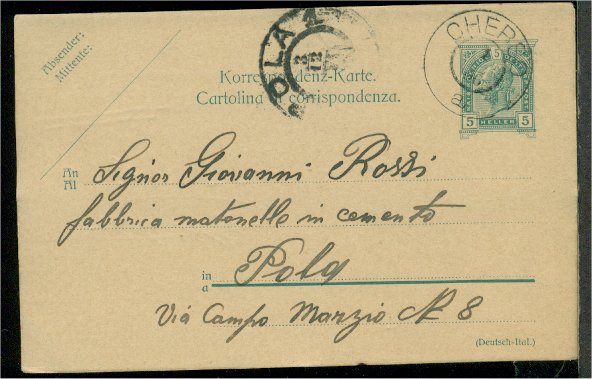 Absender:
Mittente:
POLA 1
CHERSO
5
5 HELLER 5
Korrespondenz-Karte.
Cartolina di corrispondenza.
An
Al
Signor Giovanni Rossi
fabbrica matonelle in cemento
in
a
Pola
Via Campo Marzio N. 8
(Deutsch-Ital.)